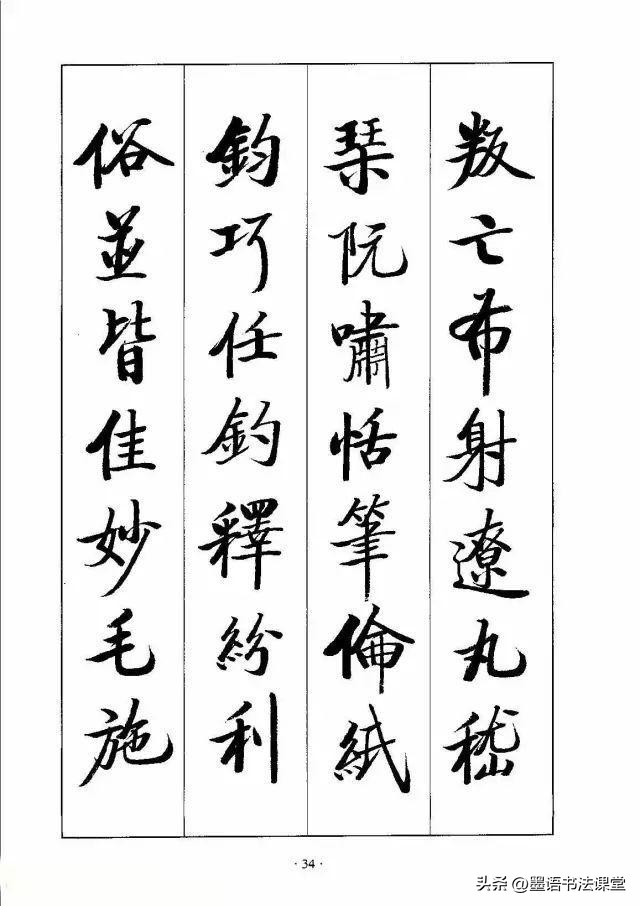 叛亡布射遼丸嵇
琹阮嘯恬筆倫紙
鈞巧任釣釋紛利
俗並皆佳妙毛施
·34·
头条@墨语书法课堂